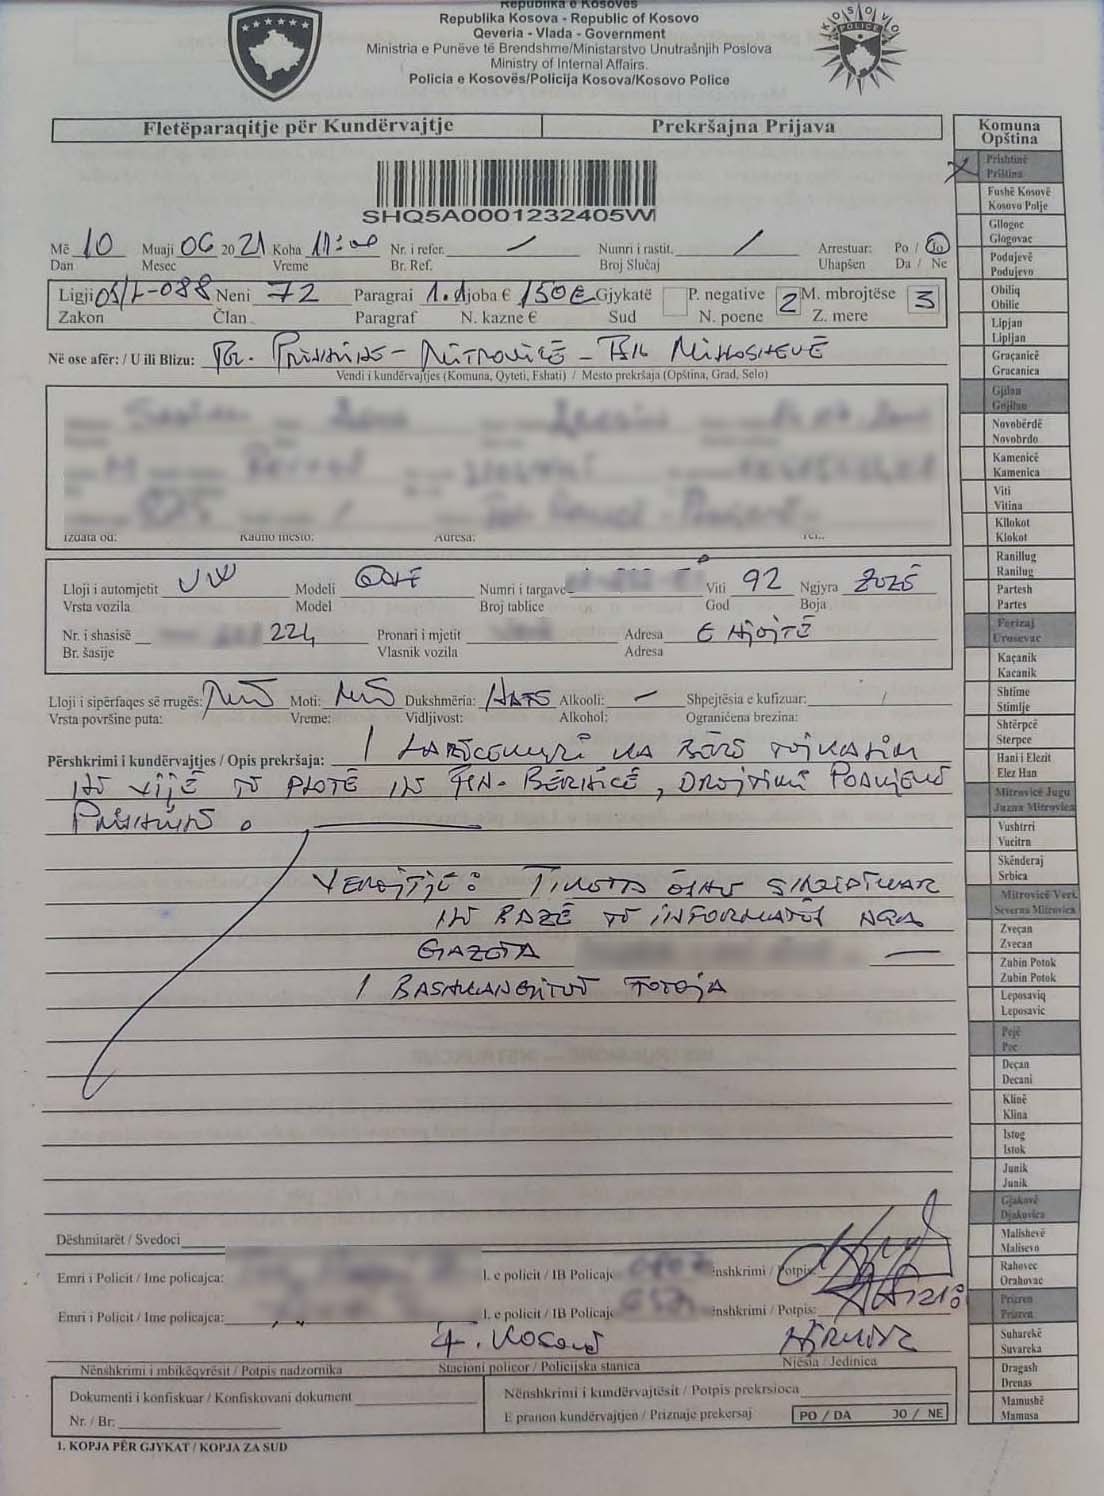 Republika e Kosovës
Republika Kosova - Republic of Kosovo
Qeveria - Vlada - Government
Ministria e Punëve të Brendshme/Ministarstvo Unutrašnjih Poslova
Ministry of Internal Affairs.
Policia e Kosovës/Policija Kosova/Kosovo Police
KOSOVO
POLICE
Fletëparaqitje për Kundërvajtje Prekršajna Prijava
SHQ5A0001232405W
Më 10 Muaji 06 2021 Koha 11:00 Nr. i refer. / Numri i rastit. / Arrestuar: Po / Jo
Dan Mesec Vreme Br. Ref. Broj Slučaj Uhapšen Da / Ne
Ligji 05/L-088 Neni 72 Paragrai 1.1 Gjoba € 150€ Gjykatë P. negative 2 M. mbrojtëse 3
Zakon Član Paragraf N. kazne € Sud N. poene Z. mere
Në ose afër: / U ili Blizu: Rr. Prishtinë - Mitrovicë - Fsh Milloshevë
Vendi i kundërvajtjes (Komuna, Qyteti, Fshati) / Mesto prekršaja (Opština, Grad, Selo)
Izdata od: Radno mesto: Adresa: Tel.:
Lloji i automjetit VW Modeli Golf Numri i targave Viti 92 Ngjyra Zezë
Vrsta vozila Model Broj tablice God Boja
Nr. i shasisë 224 Pronari i mjetit Adresa E njojtë
Br. šasije Vlasnik vozila Adresa
Lloji i sipërfaqes së rrugës: Moti: Mirë Dukshmëria: Alkooli: - Shpejtësia e kufizuar: /
Vrsta površine puta: Vreme: Vidljivost: Alkohol: Ograničena brezina:
Përshkrimi i kundërvajtjes / Opis prekršaja: I lartëcekuri ka bërë tejkalim
në vijë të plotë në Bërnicë, drejtimi Podujevë
Prishtinë.
Vërejtje: Tiketa është shqiptuar
në bazë të informatës nga
Gazeta
I bashkangjitur fotoja
Dëshmitarët / Svedoci
Emri i Policit / Ime policajca: I. e policit / IB Policajc Nënshkrimi / Potpis:
Emri i Policit / Ime policajca: I. e policit / IB Policajc Nënshkrimi / Potpis:
Nënshkrimi i mbikëqyrësit / Potpis nadzornika Stacioni policor / Policijska stanica Njësia / Jedinica
Dokumenti i konfiskuar / Konfiskovani dokument Nënshkrimi i kundërvajtësit / Potpis prekrsioca
Nr. / Br: E pranon kundërvajtjen / Priznaje prekersaj PO / DA JO / NE
1. KOPJA PËR GJYKAT / KOPJA ZA SUD
Komuna
Opština
Prishtinë
Priština
Fushë Kosovë
Kosovo Polje
Gllogoc
Glogovac
Podujevë
Podujevo
Obiliq
Obilic
Lipjan
Lipljan
Graçanicë
Gracanica
Gjilan
Gnjilan
Novobërdë
Novobrdo
Kamenicë
Kamenica
Viti
Vitina
Kllokot
Klokot
Ranillug
Ranilug
Partesh
Partes
Ferizaj
Urosevac
Kaçanik
Kacanik
Shtime
Stimlje
Shtërpcë
Sterpce
Hani i Elezit
Elez Han
Mitrovicë Jugu
Juzna Mitrovica
Vushtrri
Vucitrn
Skënderaj
Srbica
Mitrovicë Veri.
Severna Mitrovica
Zveçan
Zvecan
Zubin Potok
Zubin Potok
Leposaviq
Leposavic
Pejë
Pec
Deçan
Decani
Klinë
Klina
Istog
Istok
Junik
Junik
Gjakovë
Djakovica
Malishevë
Malisevo
Rahovec
Orahovac
Prizren
Prizren
Suharekë
Suvareka
Dragash
Drenas
Mamushë
Mamusa